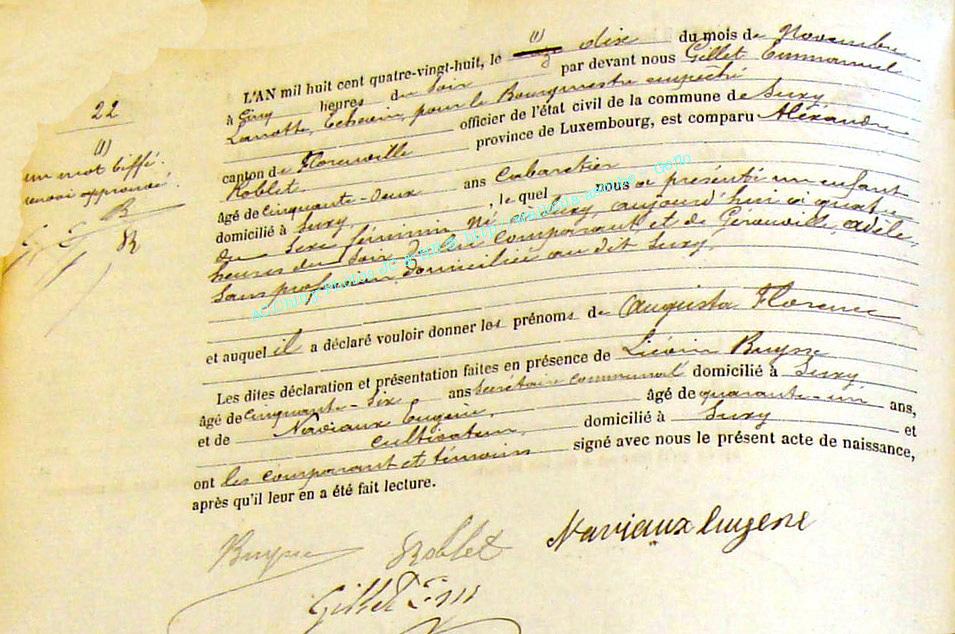 22
(1)
un mot biffé.
renvoi approuvé.
B
R
L'AN mil huit cent quatre-vingt-huit, le (1) dix du mois de Novembre
à cinq heures du soir par devant nous Gillet Emmanuel
Lamotte, Echevin, pour le Bourgmestre empêché
officier de l'état civil de la commune de Suxy
canton de Florenville province de Luxembourg, est comparu Alexandre
Roblet
âgé de cinquante-deux ans Cabaretier
domicilié à Suxy, le quel nous a présenté un enfant
du sexe féminin né à Suxy, aujourd'hui à quatre
heures du soir de lui comparant et de Gérouville, Adèle,
sans profession, domiciliée au dit Suxy,
et auquel il a déclaré vouloir donner les prénoms de Augusta Florence
Les dites déclaration et présentation faites en présence de Liévin Buysse
âgé de cinquante-six ans Secrétaire communal domicilié à Suxy
et de Naviaux Eugène, âgé de quarante-un ans,
cultivateur, domicilié à Suxy et
ont les comparant et témoins signé avec nous le présent acte de naissance,
après qu'il leur en a été fait lecture.
Buysse Roblet Naviaux Eugene
Gillet Em